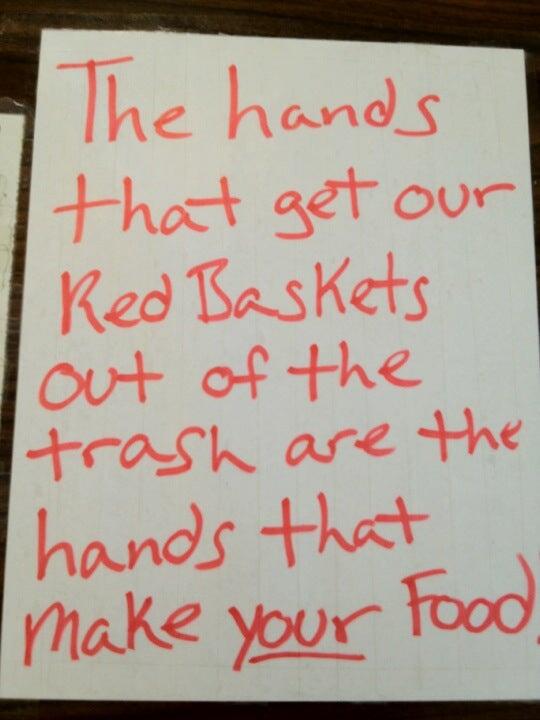 The hands
that get our
Red Baskets
out of the
trash are the
hands that
make your Food.